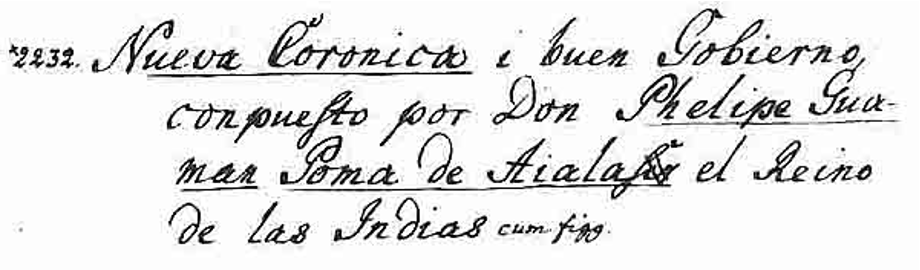 *2232. Nueva Coronica i buen Gobierno,
conpuesto por Don Phelipe Gua-
man Poma de Aiala el Reino
de las Indias cum figg.